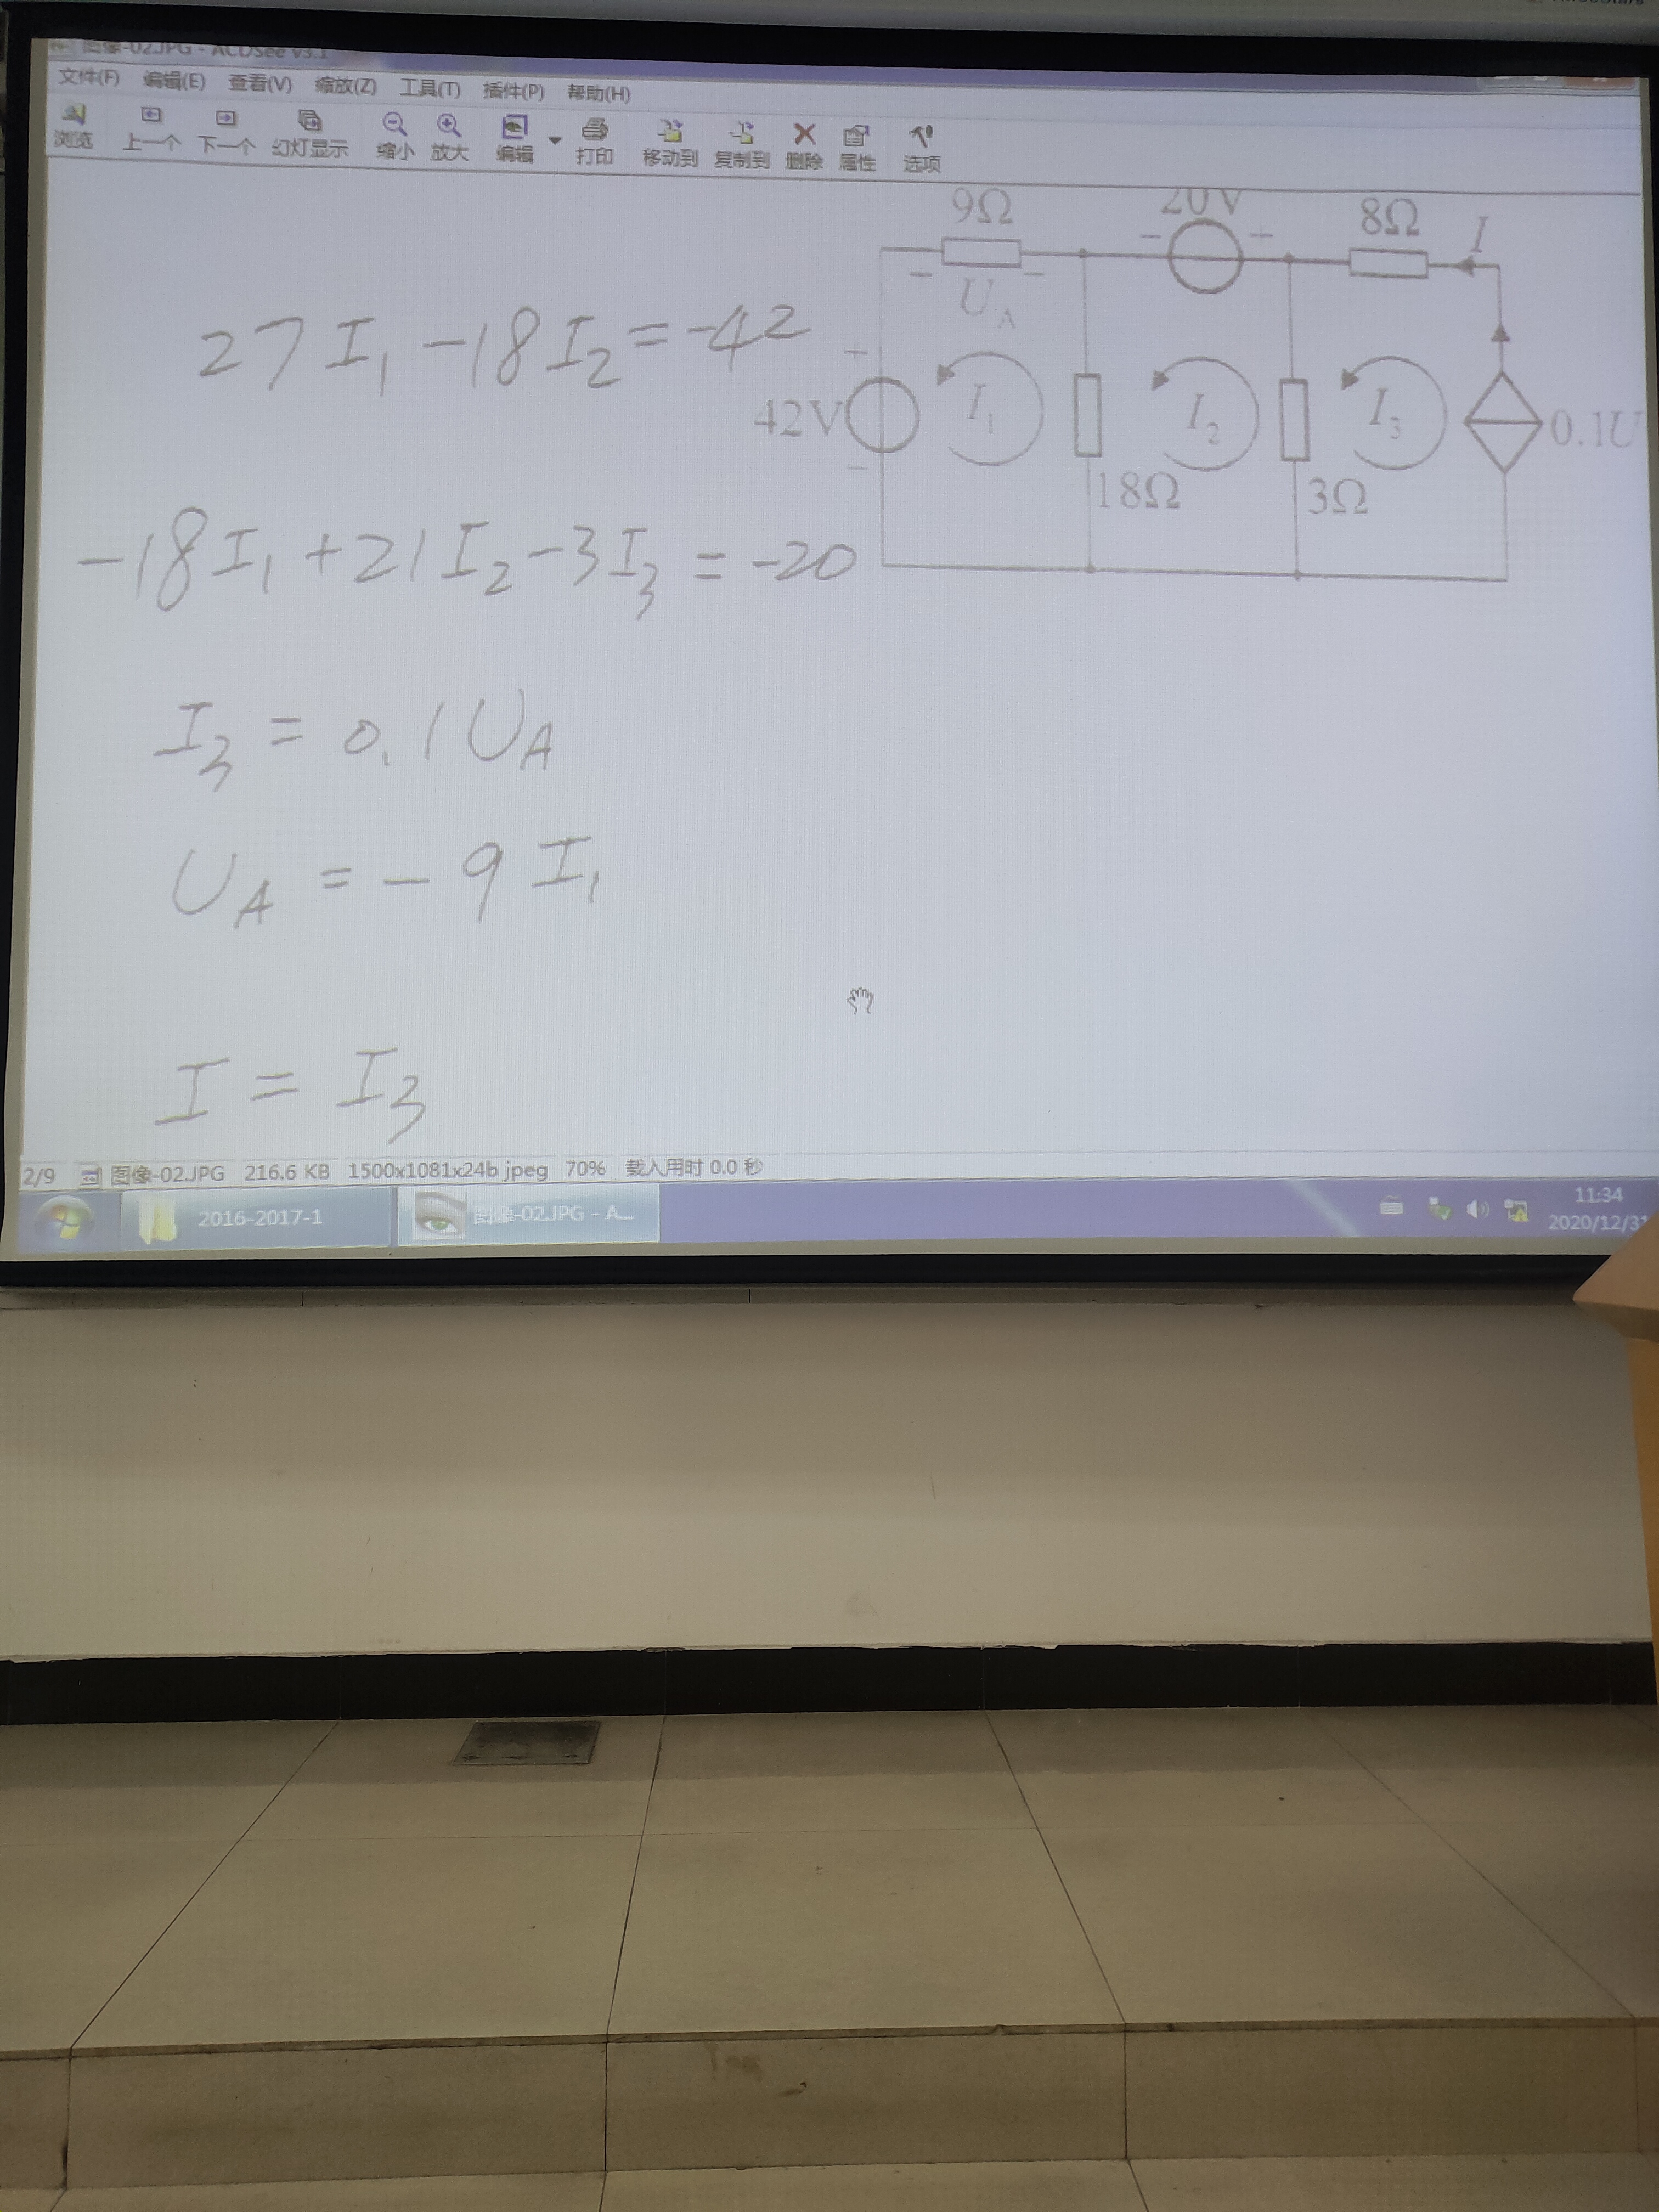 图像-02.JPG - ACDSee v3.1
文件(F) 编辑(E) 查看(V) 缩放(Z) 工具(T) 插件(P) 帮助(H)
浏览 上一个 下一个 幻灯显示 缩小 放大 编辑 打印 移动到 复制到 删除 属性 选项
9Ω 20V 8Ω I
− U_A − − +
27I₁ -18I₂ = -42
+ 42V − I₁ I₂ I₃ 0.1U
18Ω 3Ω
-18I₁ +21I₂ -3I₃ = -20
I₃ = 0.1U_A
U_A = -9I₁
I = I₃
2/9 图像-02.JPG 216.6 KB 1500x1081x24b jpeg 70% 载入用时 0.0 秒
2016-2017-1 图像-02.JPG - A... 11:34
2020/12/31